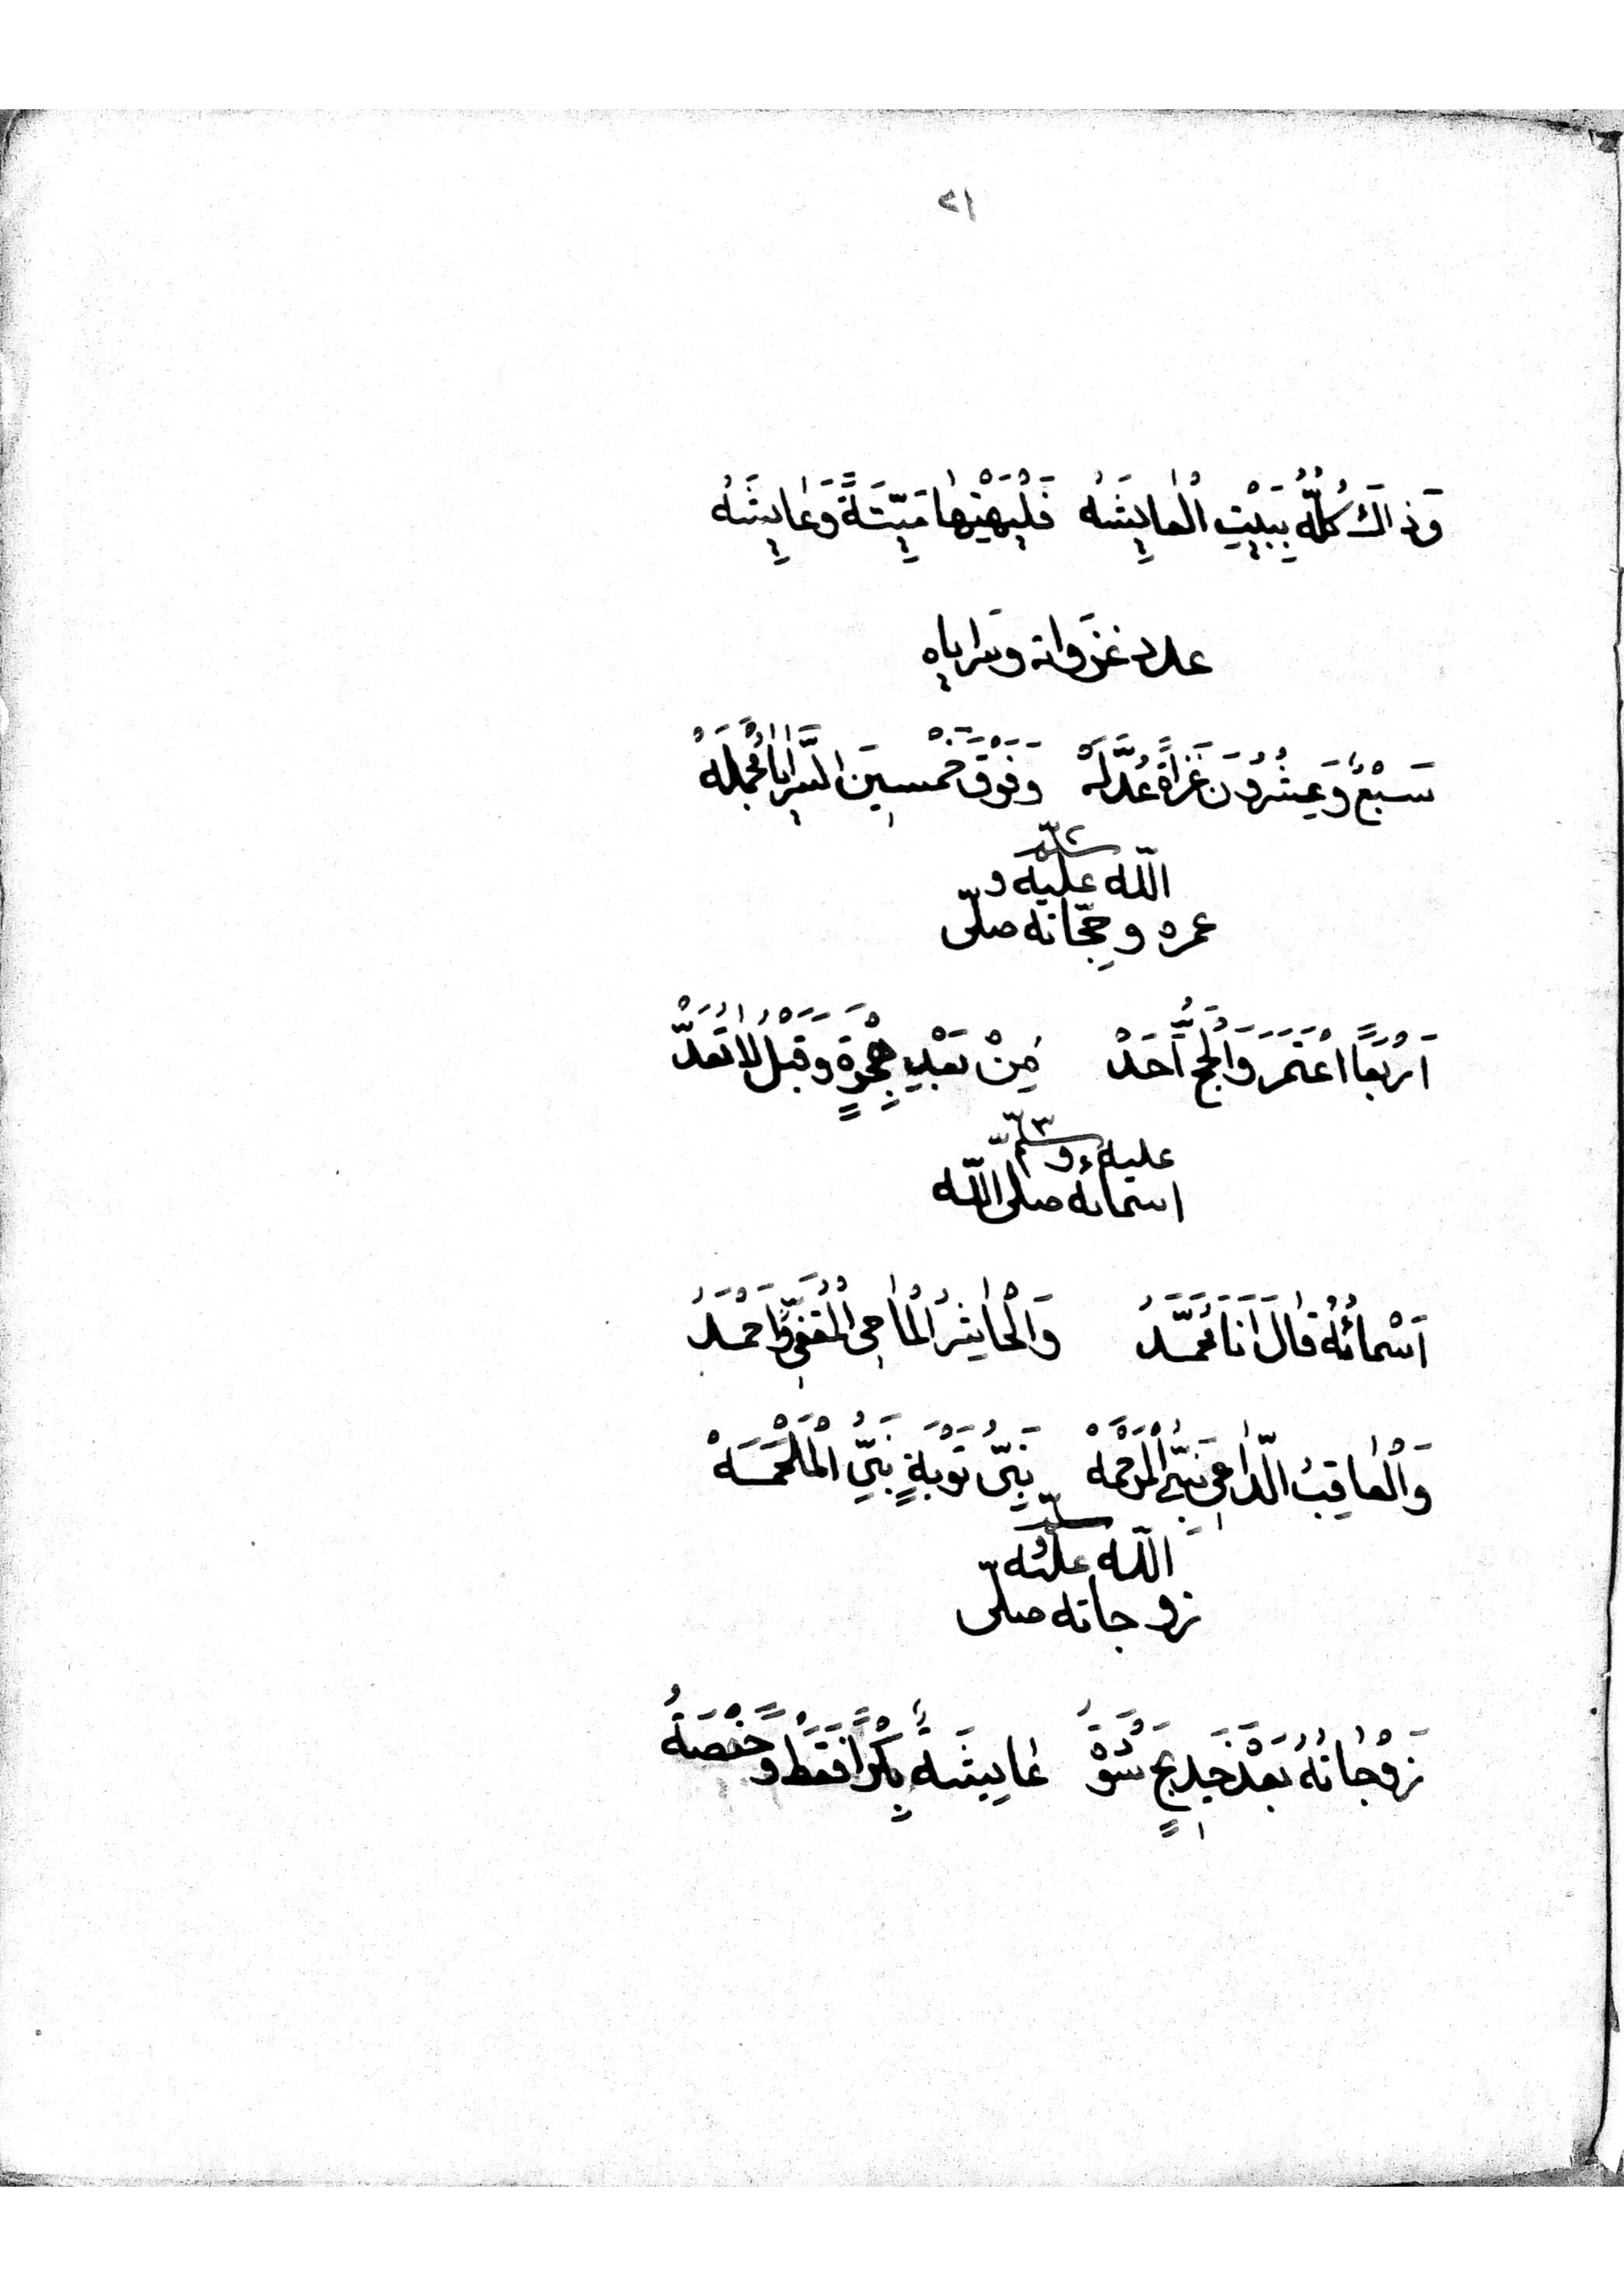 ٢١
وَذَاكَ كُلُّهُ بِبَيْتِ الْعَايِشَهْ فَلْيَهْنِهَا مَيِّتَةً وَعَايِشَهْ
عدد غزواته وسراياه
سَبْعٌ وَعِشْرُونَ غَزَاةً عُدَّ لَهْ وَفَوْقَ خَمْسِينَ السَّرَايَا مُجْمَلَهْ
عمره وحِجّاته صلّى الله عليه و
اَرْبَعًا اعْتَمَرَ وَالْحَجُّ اَحَدْ مِنْ بَعْدِ هِجْرَةٍ وَقَبْلُ لَا تُعَدّْ
اسمائه صلى الله عليه و
اَسْمَائُهُ قَالَ اَنَا مُحَمَّدُ وَالْحَاشِرُ الْمَاحِى الْمُقَفِّى وَاَحْمَدُ
وَالْعَاقِبُ الدَّاعِى نَبِىُّ الْمَرْحَمَهْ نَبِىُّ تَوْبَةٍ نَبِىُّ الْمَلْحَمَهْ
زوجاته صلّى الله عليه
زَوْجَاتُهُ بَعْدَ خَدِيجٍ سَوْدَةُ عَايِشَةٌ بِكْرًا فَقَطْ وَحَفْصَةُ